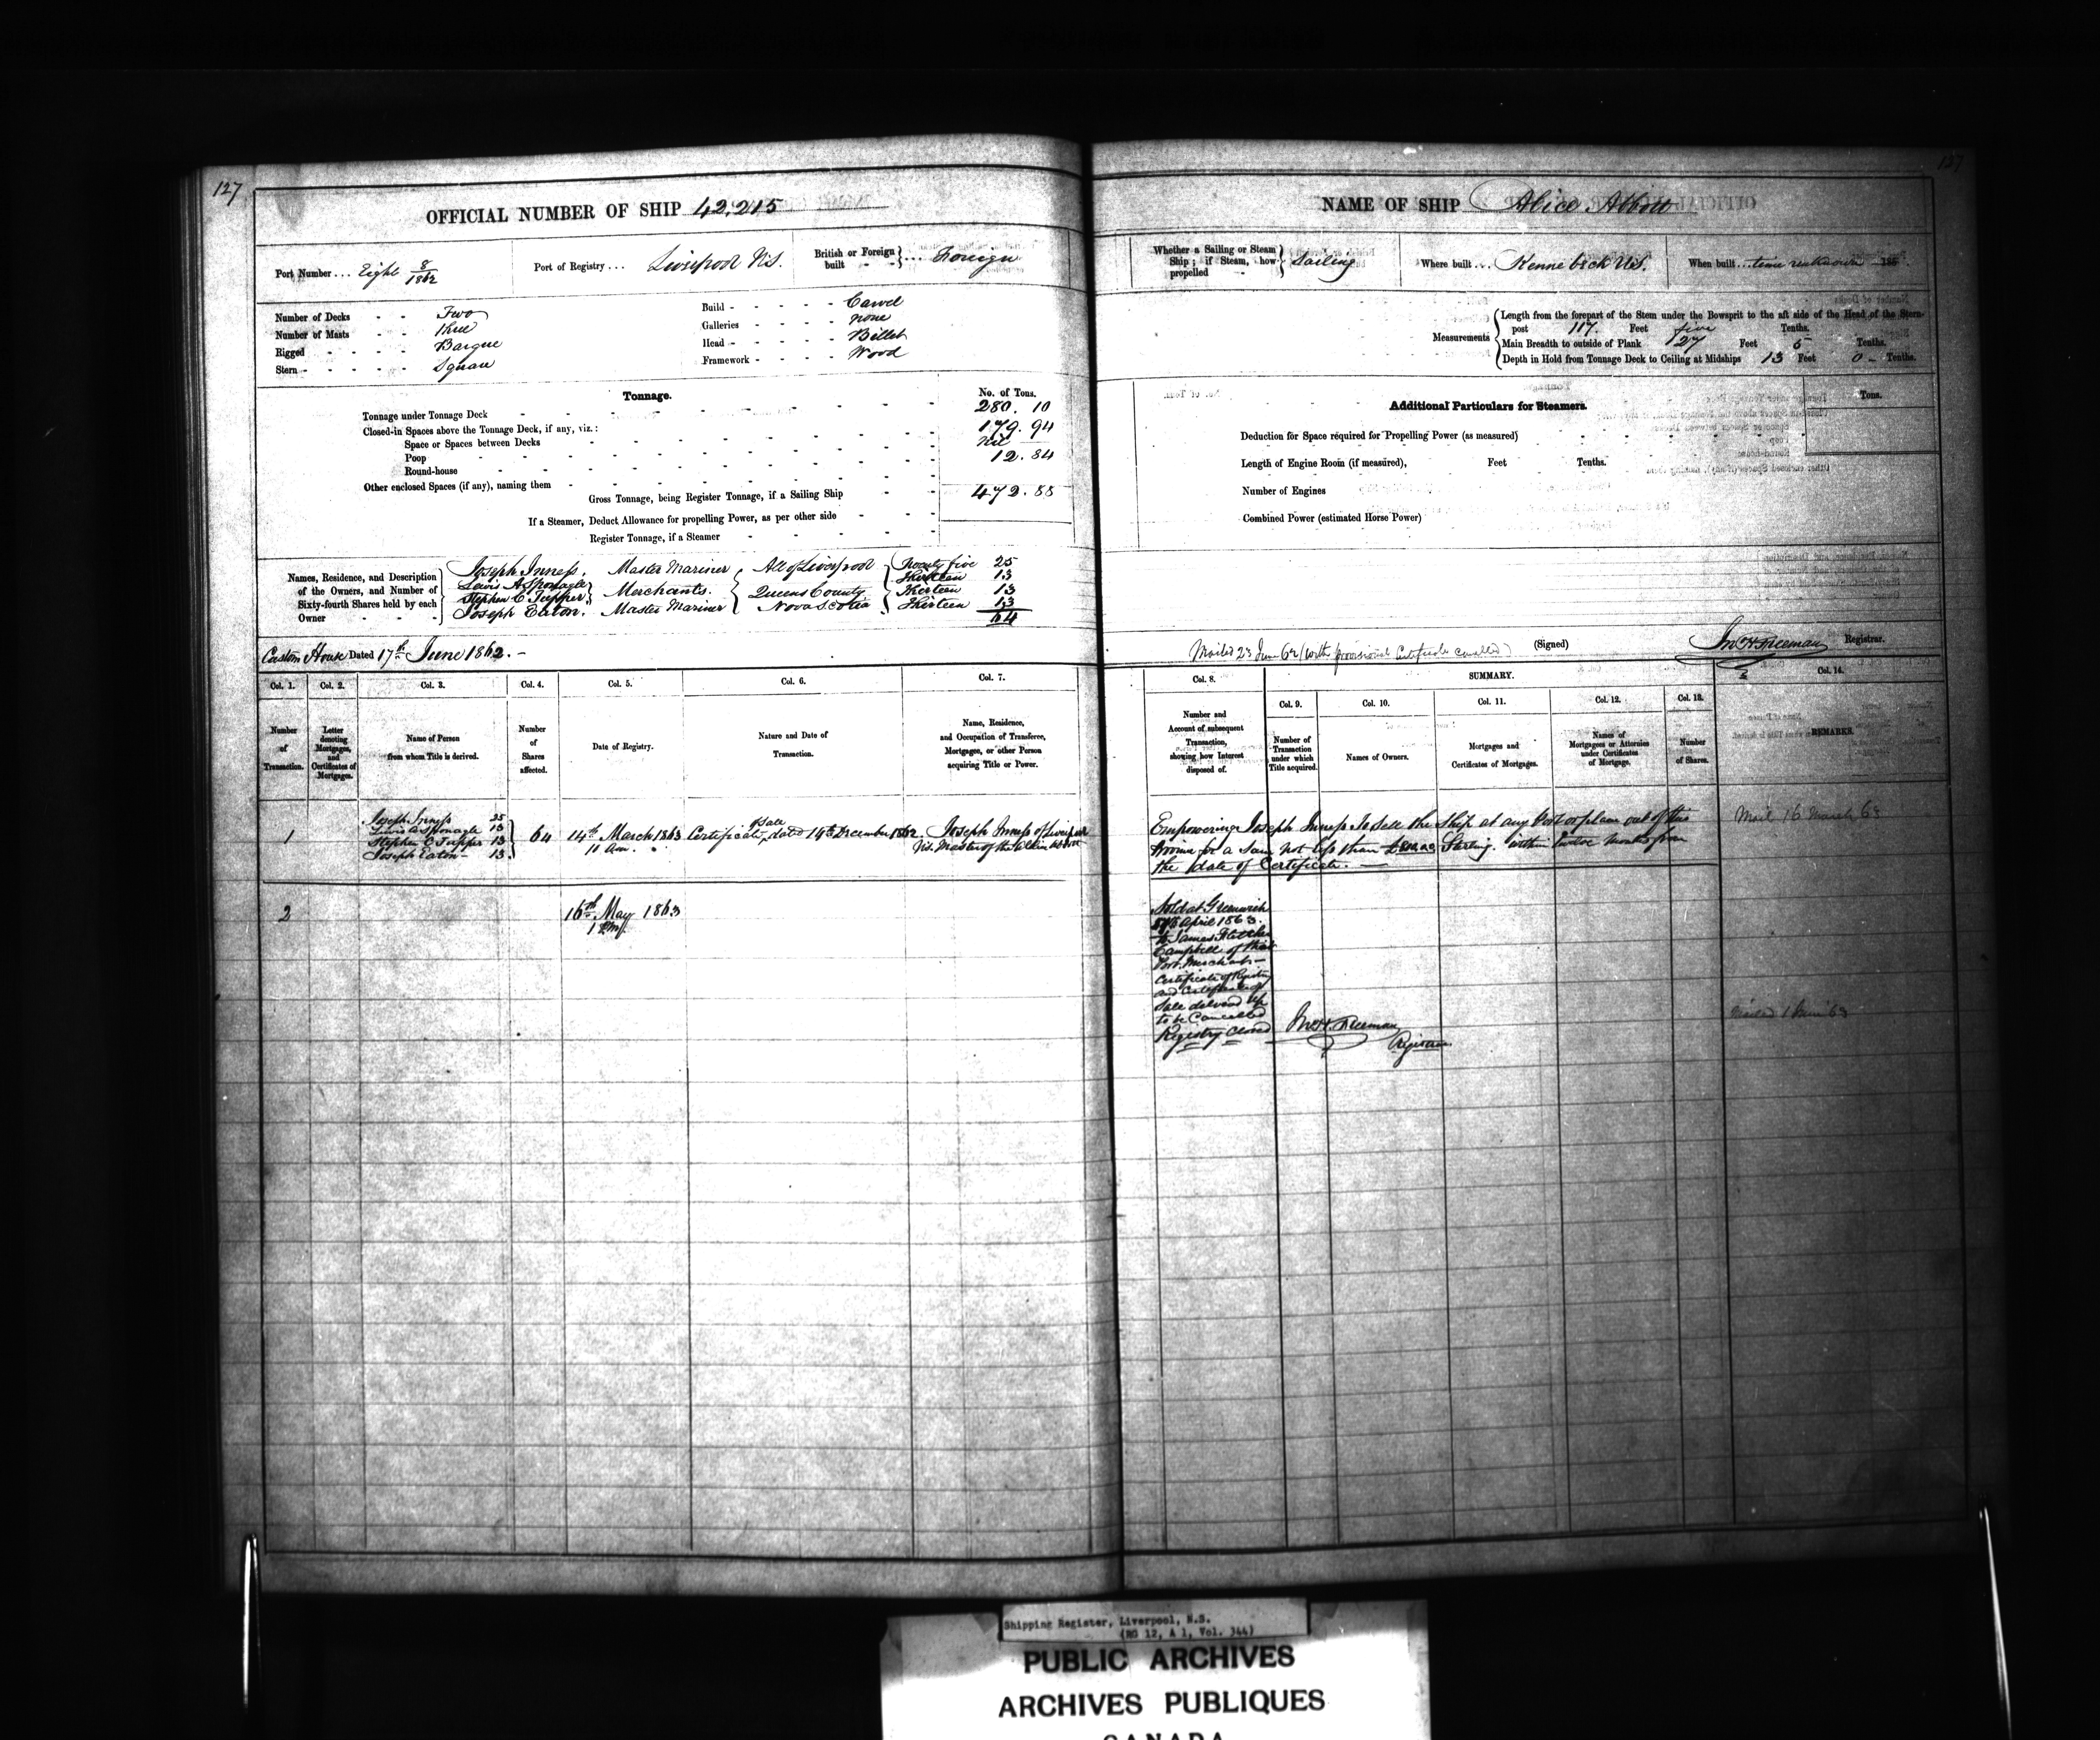 127
OFFICIAL NUMBER OF SHIP 42,215
Port Number ... Eight 8/1862
Port of Registry ... Liverpool N.S.
British or Foreign built ... Foreign
Number of Decks Two
Number of Masts Three
Rigged Barque
Stern Square
Build Carvel
Galleries none
Head Billet
Framework Wood
Tonnage.
No. of Tons.
Tonnage under Tonnage Deck 280.10
Closed-in Spaces above the Tonnage Deck, if any, viz.:
Space or Spaces between Decks 179.94
Poop Nil
Round-house 12.84
Other enclosed Spaces (if any), naming them
Gross Tonnage, being Register Tonnage, if a Sailing Ship 472.88
If a Steamer, Deduct Allowance for propelling Power, as per other side
Register Tonnage, if a Steamer
Names, Residence, and Description of the Owners, and Number of Sixty-fourth Shares held by each Owner
Joseph Inness, Master Mariner All of Liverpool Twenty five 25
Lewis A Sponagle Thirteen 13
Stephen C Tupper Merchants. Queens County Thirteen 13
Joseph Eaton. Master Mariner Nova Scotia Thirteen 13
64
Custom House Dated 17th June 1862. -
Col. 1. Col. 2. Col. 3. Col. 4. Col. 5. Col. 6. Col. 7.
Number of Transaction.
Letter denoting Mortgages, and Certificates of Mortgages.
Name of Person from whom Title is derived.
Number of Shares affected.
Date of Registry.
Nature and Date of Transaction.
Name, Residence, and Occupation of Transferee, Mortgagee, or other Person acquiring Title or Power.
1
Joseph Inness 25
Lewis A Sponagle 13
Stephen C Tupper 13
Joseph Eaton - 13
64
14th March 1863
11 Am. "
Certificate of Sale dated 14th December 1862.
Joseph Inness of Liverpool
N.S. Master of the Alice Abbott
2
16th May 1863
1 Pm
127
NAME OF SHIP Alice Abbott
Whether a Sailing or Steam Ship; if Steam, how propelled Sailing
Where built ... Kennebeck U.S.
When built ... time unknown 185
Measurements
Length from the forepart of the Stem under the Bowsprit to the aft side of the Head of the Stern-
post 117. Feet five Tenths.
Main Breadth to outside of Plank 27 Feet 5 Tenths.
Depth in Hold from Tonnage Deck to Ceiling at Midships 13 Feet 0 - Tenths.
Additional Particulars for Steamers.
Tons.
Deduction for Space required for Propelling Power (as measured)
Length of Engine Room (if measured), Feet Tenths.
Number of Engines
Combined Power (estimated Horse Power)
Mailed 23 June 62 (with provisional Certificate cancelled)
(Signed) Jno H. Freeman Registrar.
Col. 8. SUMMARY. Col. 14.
Col. 9. Col. 10. Col. 11. Col. 12. Col. 13.
Number and Account of subsequent Transaction, showing how Interest disposed of.
Number of Transaction under which Title acquired.
Names of Owners.
Mortgages and Certificates of Mortgages.
Names of Mortgagees or Attornies under Certificates of Mortgage.
Number of Shares.
REMARKS.
Empowering Joseph Inness to sell the Ship at any Port or place out of this
Province for a Sum not less than Sterling. within twelve months from
the date of Certificate. -
Mail 16 March 63
Sold at Greenwich
April 1863.
to James Fletcher
Campbell of that
Port Merchant -
Certificate of Registry
and Certificate of
Sale delivered up
to be Cancelled
Registry Closed
Jno H. Freeman
Registrar
Mailed 1 June 63
Shipping Register, Liverpool, N.S.
(RG 12, A 1, Vol. 344)
PUBLIC ARCHIVES
ARCHIVES PUBLIQUES
CANADA